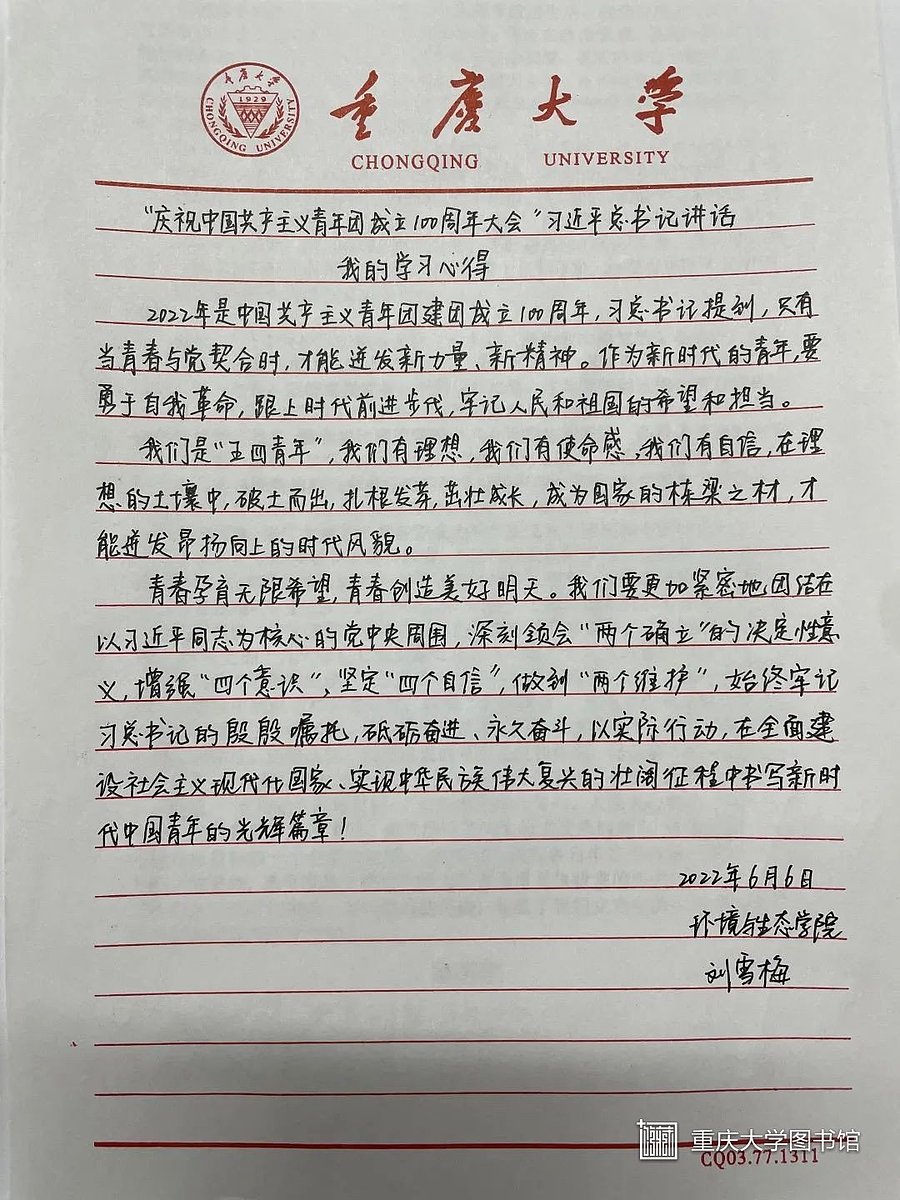 重庆大学
CHONGQING UNIVERSITY
1929
重庆大学
CHONGQING UNIVERSITY
“庆祝中国共产主义青年团成立100周年大会”习近平总书记讲话
我的学习心得
2022年是中国共产主义青年团建团成立100周年,习总书记提到,只有
当青春与党契合时,才能迸发新力量、新精神。作为新时代的青年,要
勇于自我革命,跟上时代前进步伐,牢记人民和祖国的希望和担当。
我们是“五四青年”,我们有理想,我们有使命感,我们有自信,在理
想的土壤中,破土而出,扎根发芽,茁壮成长,成为国家的栋梁之材,才
能迸发昂扬向上的时代风貌。
青春孕育无限希望,青春创造美好明天。我们要更加紧密地团结在
以习近平同志为核心的党中央周围,深刻领会“两个确立”的决定性意
义,增强“四个意识”、坚定“四个自信”,做到“两个维护”,始终牢记
习总书记的殷殷嘱托,砥砺奋进、永久奋斗,以实际行动,在全面建
设社会主义现代化国家、实现中华民族伟大复兴的壮阔征程中书写新时
代中国青年的光辉篇章!
2022年6月6日
环境与生态学院
刘雪梅
重庆大学图书馆
CQ03.77.1311